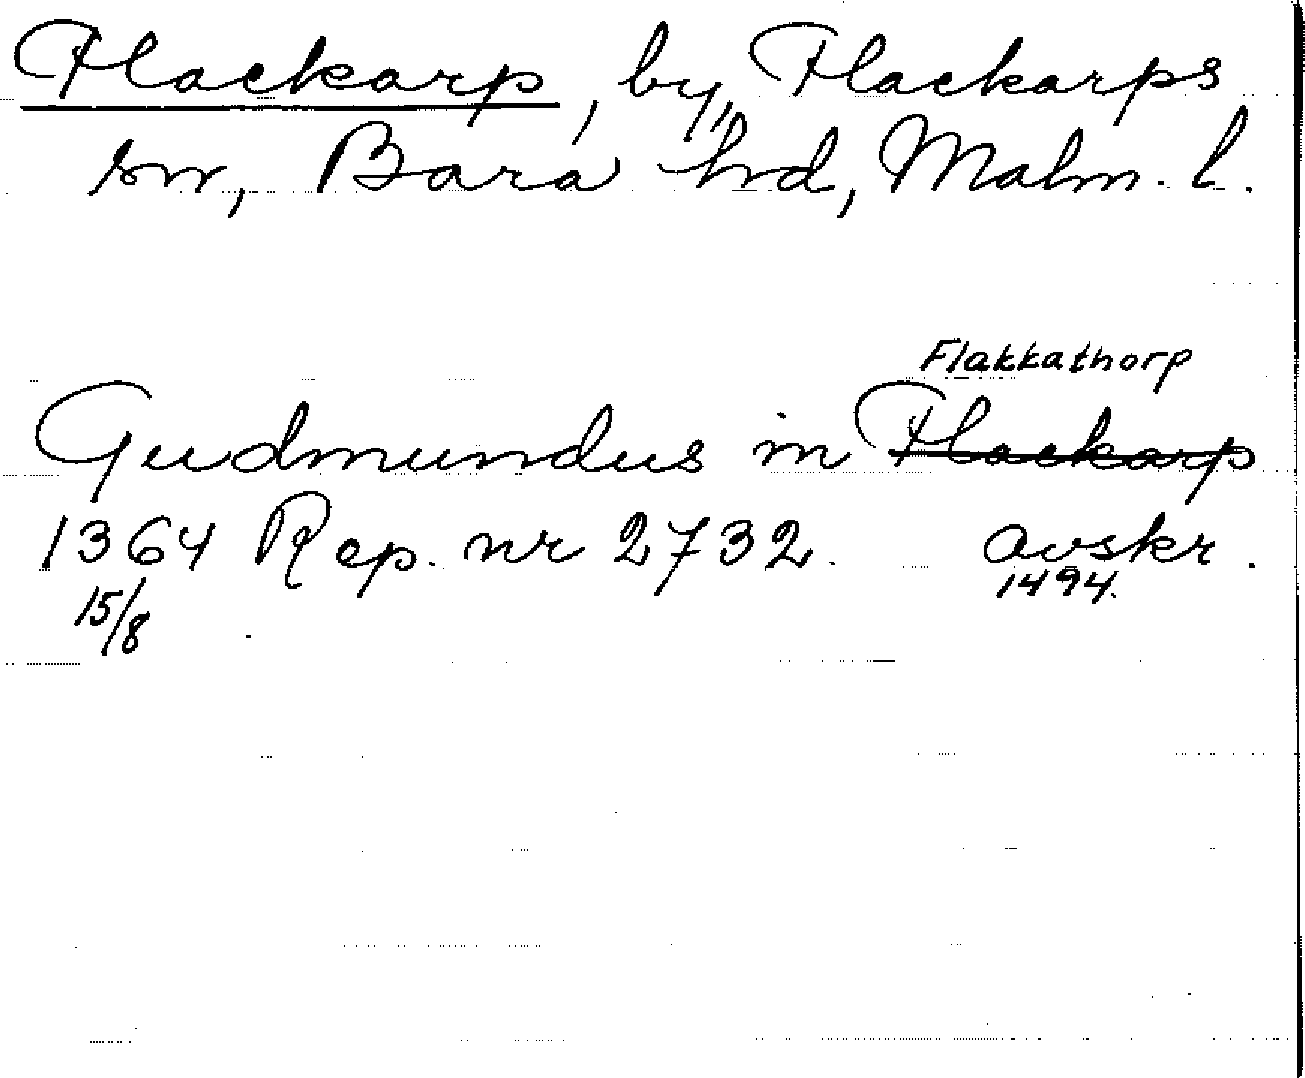 Flackarp, by, Flackarps
sn, Bara hd, Malm. l.
Flakkathorp
Gudmundus in Flackarp
1364 Rep. nr 2732. avskr.
15/8 1494.